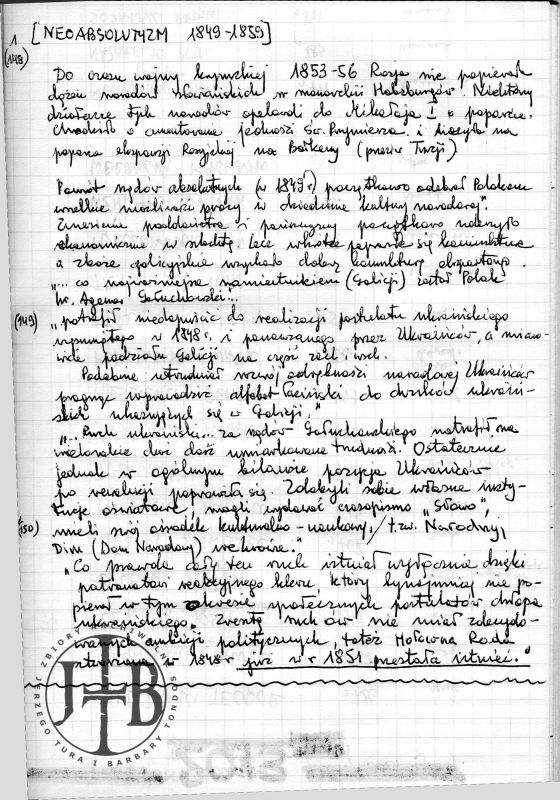 1 [NEOABSOLUTYZM 1849-1859]
(148)
Do czasu wojny krymskiej 1853-56 Rosja nie popierała
dążeń narodów słowiańskich w monarchii Habsburgów. Niektórzy
działacze tych narodów apelowali do Mikołaja I o poparcie.
Chodziło o cementowanie jedności Św. Przymierza i na
poparcie ekspansji Rosyjskiej na Bałkany (przeciw Turcji)
Powrót rządów absolutnych (w 1849 r) początkowo odebrał Polakom
wszelkie możliwości pracy w dziedzinie kultury narodowej".
Zniesienie poddaństwa i pańszczyzny początkowo
ekonomicznie w szlachtę. Lecz wkrótce poprawiła się koniunktura
a zboże galicyjskie uzyskało dobrą koniunkturę eksportową.
"... co najważniejsze namiestnikiem (Galicji) został Polak
hr. Agenor Gołuchowski...
(149) "potrafił niedopuścić do realizacji postulatu ukraińskiego
wysuniętego w 1848 r. i ponawianego przez Ukraińców, a miano-
wicie podziału Galicji na część zach i wsch.
Podobnie utrudniał rozwój odrębności narodowej Ukraińców
pragnąc wprowadzić alfabet łaciński do druków ukraiń-
skich ukazujących się w Galicji."
"... Ruch ukraiński... za rządów Gołuchowskiego natrafił na
wielorakie choć dość umiarkowane trudności. Ostatecznie
jednak w ogólnym bilansie pozycja Ukraińców
po rewolucji poprawiła się. Zdobyli sobie własne insty-
tucje oświatowe, mogli wydawać czasopismo "Słowo",
(150) mieli swój ośrodek kulturalno-naukowy, /t.zw. Narodnyj
Dim (Dom Narodowy) we Lwowie."
"Co prawda cały ten ruch istniał wyłącznie dzięki
patronatowi reakcyjnego kleru, który bynajmniej nie po-
pierał w tym okresie społecznych postulatów chłopa
ukraińskiego. Zresztą ruch ów nie miał zdecydo-
wanych ambicji politycznych, toteż Hołowna Rada
utworzona w 1848 r już w r 1851 przestała istnieć."
ZBIORY ARCHIWALNE
JERZEGO TURA I BARBARY TONDOS
JTB